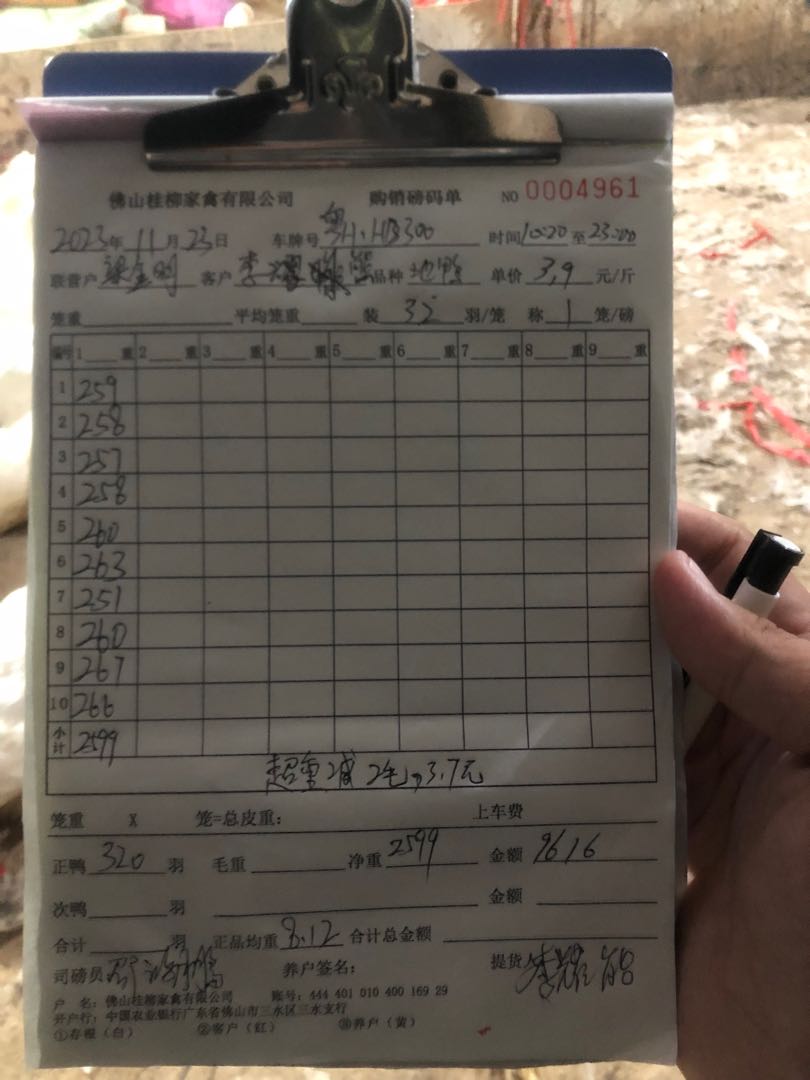 佛山桂柳家禽有限公司 购销磅码单 NO 0004961
2023年 11月 23日 车牌号 粤H·HB300 时间 10:20 至 23:00
联营户 梁金明 客户 李 品种 地鸭 单价 3,9 元/斤
笼重 平均笼重 装 32 羽/笼 称 1 笼/磅
编号 1 重 2 重 3 重 4 重 5 重 6 重 7 重 8 重 9 重
1 259
2 258
3 257
4 258
5 260
6 263
7 251
8 260
9 267
10 266
小计 2599
超重减2毛,3.7元
笼重 X 笼=总皮重: 上车费
正鸭 320 羽 毛重 净重 2599 金额 9616
次鸭 羽 金额
合计 羽 正品均重 8.12 合计总金额
司磅员 养户签名: 提货人 李耀
户 名: 佛山桂柳家禽有限公司 账号: 444 401 010 400 169 29
开户行: 中国农业银行广东省佛山市三水区三水支行
①存根(白) ②客户(红) ③养户(黄)